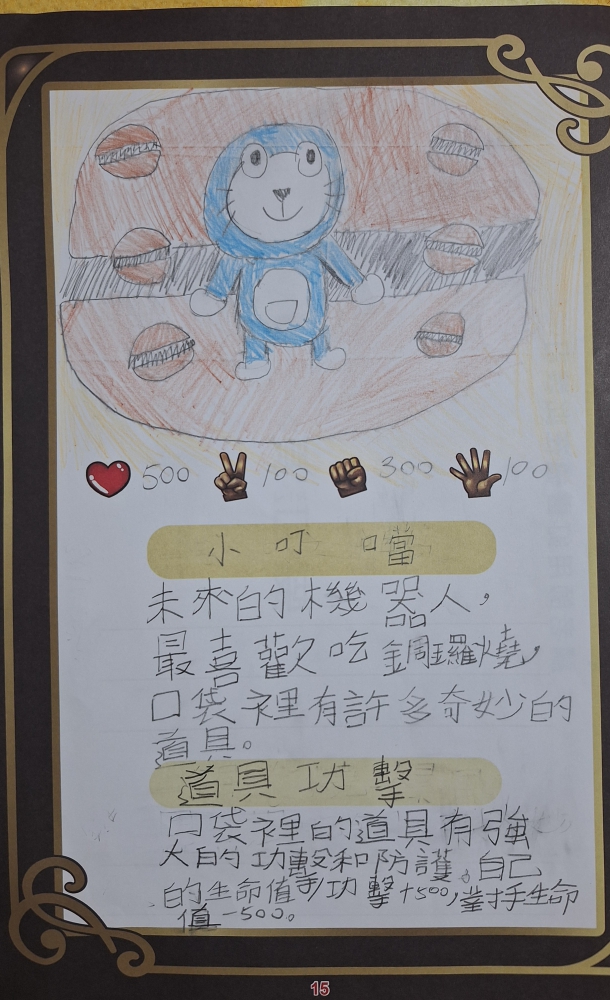 500 100 300 100
小叮噹
未來的機器人,
最喜歡吃銅鑼燒,
口袋裡有許多奇妙的
道具。
道具功擊
口袋裡的道具有強
大的功擊和防護。自己
的生命值/功擊+500,對手生命
值-500。
15